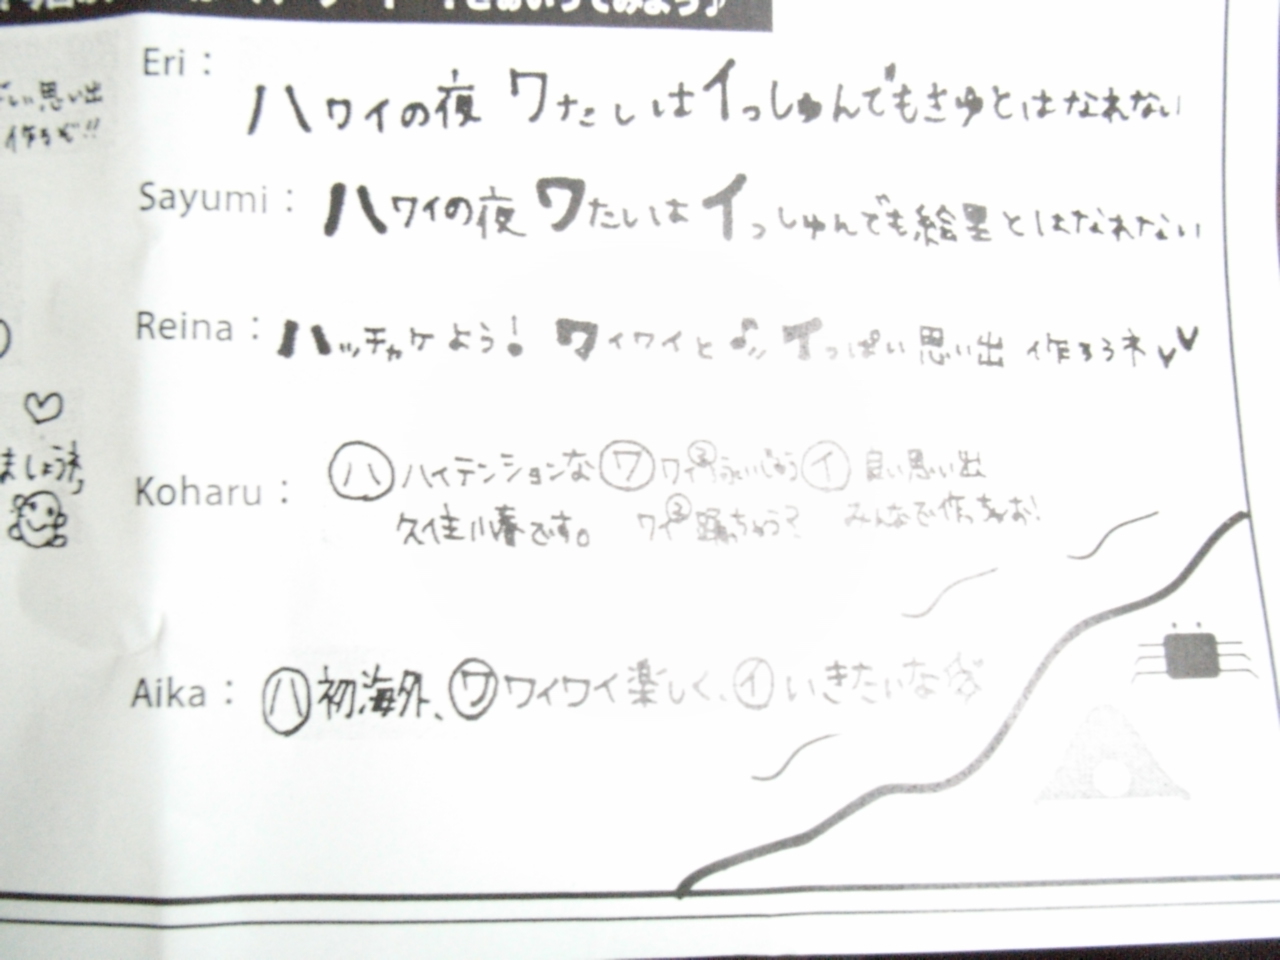 であいうてみよう♪
い思い出
作るぞ!!
Eri：
ハワイの夜 ワたしはイっしゅんでもさゆとはなれない
Sayumi：ハワイの夜 ワたしは イっしゅんでも絵里とはなれない
Reina：ハッチャケよう! ワイワイと♪ イっぱい思い出 作ろうネ
♡
ましょうね
Koharu：ハ ハイテンションな ワ イ 良い思い出
久住小春です。 踊っちゃう? みんなで作っちゃお!
Aika：ハ 初海外、ワ ワイワイ楽しく、イ いきたいな☆